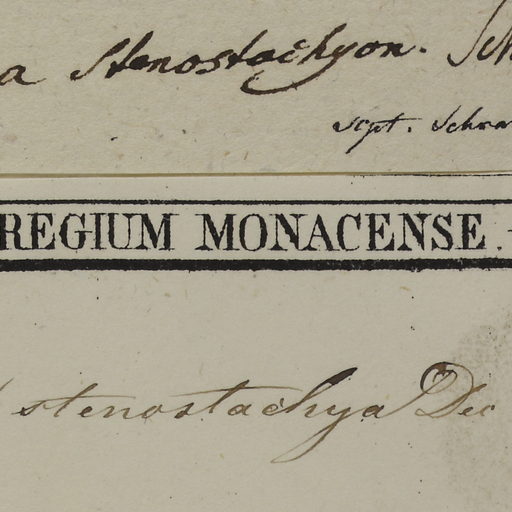 a stenostachyon. Sch
scpt. Schra
REGIUM MONACENSE.
stenostachya Dec